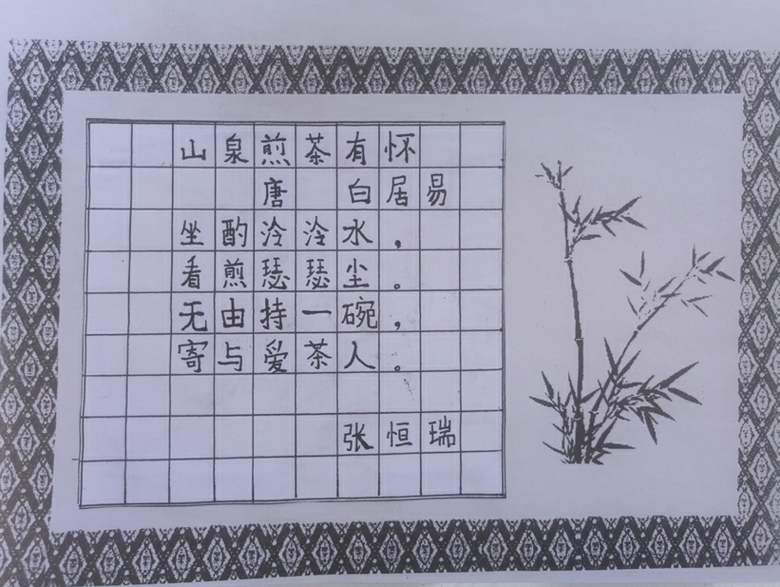 山泉煎茶有怀
唐 白居易
坐酌泠泠水，
看煎瑟瑟尘。
无由持一碗，
寄与爱茶人。
张恒瑞